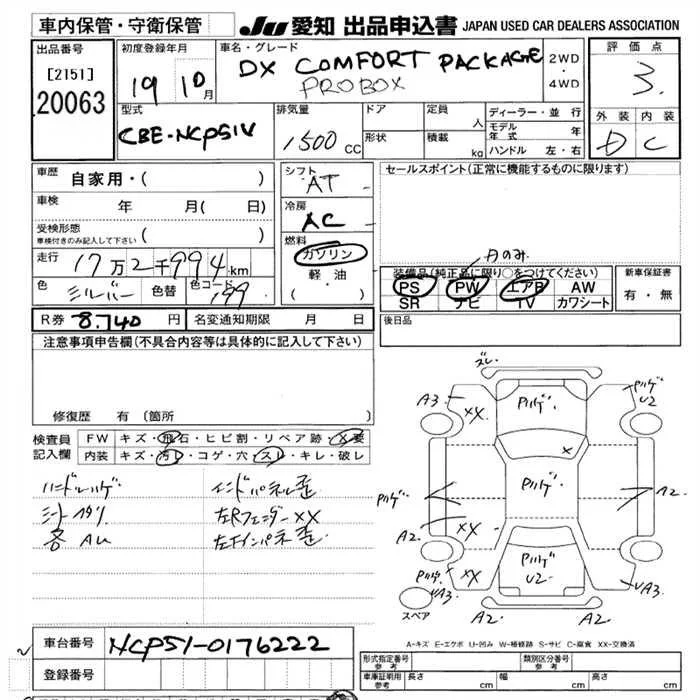 車内保管・守衛保管 JU 愛知 出品申込書 JAPAN USED CAR DEALERS ASSOCIATION
出品番号 初度登録年月 車名・グレード 2WD・4WD 評価点
[2151] 19 10月 DX COMFORT PACKAGE 3.
20063 PROBOX
型式 排気量 ドア 定員 人 ディーラー・並行 外装 内装
CBE-NCP51V 1500 CC 形状 積載 kg モデル年式 年 D C
ハンドル 左・右
車歴 自家用・( ) シフト AT セールスポイント(正常に機能するものに限ります)
車検 年 月( 日) 冷房 AC
受検形態 車検付きのみ記入して下さい ( ) 燃料 ガソリン
走行 17万2千994km 軽油
色 シルバー 色替 色コード 199 (・ )
Fのみ
装備品(純正品に限り○をつけてください) 新車保証書
PS PW エアB AW 有・無
SR ナビ TV カワシート
R券 8.740円 名変通知期限 月 日 後日品
注意事項申告欄(不具合内容等は具体的に記入して下さい)
修復歴 有 〔箇所 〕
検査員記入欄 FW キズ・飛石・ヒビ割・リペア跡・X要
内装 キズ・汚レ・コゲ・穴・スレ・キレ・破レ
ハンドルハゲ インドパネル歪
シートヘタリ 左Rフェンダー XX
各AU 左Fインパネ歪
ズレ
A3 XX Pハゲ Pハゲ U2
X
Pハゲ
Pハゲ A2
A2 XX
Pハゲ XX Pハゲ U2 UA3 UA3
スペア A2 A2
A-キズ E-エクボ U-凹み W-補修跡 S-サビ C-腐食 XX-交換済
車台番号 NCP51-0176222
登録番号
形式指定番号 参考 類別区分番号 参考
車庫証明用 参考 長さ cm 幅 cm 高さ cm